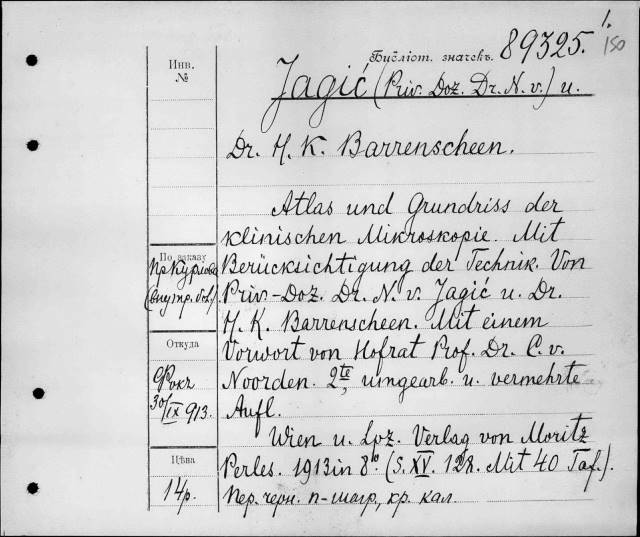 1.
Библіот. значекъ. 89325.
150
Инв.
№
Jagić (Priv. Doz. Dr. N. v.) u.
Dr. H. K. Barrenscheen.
Atlas und Grundriss der
klinischen Mikroskopie. Mit
Berücksichtigung der Technik. Von
Priv-Doz. Dr. N. v. Jagić u. Dr.
H. K. Barrenscheen. Mit einem
Vorwort von Hofrat Prof. Dr. C. v.
Noorden. 2te, umgearb. u. vermehrte
Aufl.
Wien u. Lpz. Verlag von Moritz
Perles. 1913 in 8º (S. XV. 128. Mit 40 Taf.).
Пер. черн. п-шагр, кр. кал.
По заказу
Пр Курлова
Откуда
Фокк
30/IX 913.
Цѣна
14р.